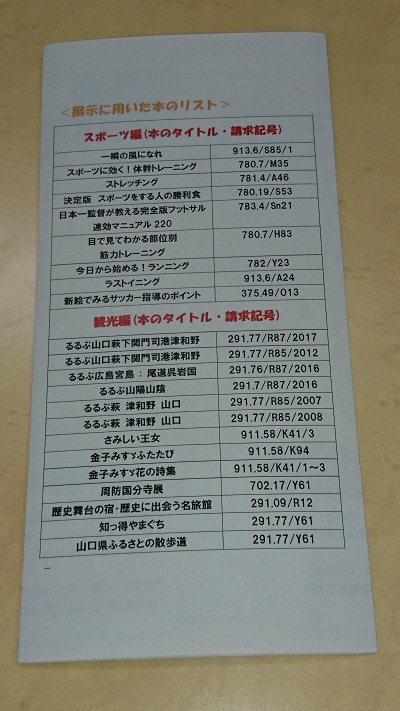 ＜展示に用いた本のリスト＞
スポーツ編(本のタイトル・請求記号)
一瞬の風になれ 913.6/S85/1
スポーツに効く！体幹トレーニング 780.7/M35
ストレッチング 781.4/A46
決定版 スポーツをする人の勝利食 780.19/S53
日本一監督が教える完全版フットサル 783.4/Sn21
速効マニュアル 220
目で見てわかる部位別 780.7/H83
筋力トレーニング
今日から始める！ランニング 782/Y23
ラストイニング 913.6/A24
新絵でみるサッカー指導のポイント 375.49/O13
観光編(本のタイトル・請求記号)
るるぶ山口萩下関門司港津和野 291.77/R87/2017
るるぶ山口萩下関門司港津和野 291.77/R85/2012
るるぶ広島宮島：尾道呉岩国 291.76/R87/2016
るるぶ山陽山陰 291.7/R87/2016
るるぶ萩 津和野 山口 291.77/R85/2007
るるぶ萩 津和野 山口 291.77/R85/2008
さみしい王女 911.58/K41/3
金子みすゞふたたび 911.58/K94
金子みすゞ花の詩集 911.58/K41/1～3
周防国分寺展 702.17/Y61
歴史舞台の宿-歴史に出会う名旅館 291.09/R12
知っ得やまぐち 291.77/Y61
山口県ふるさとの散歩道 291.77/Y61